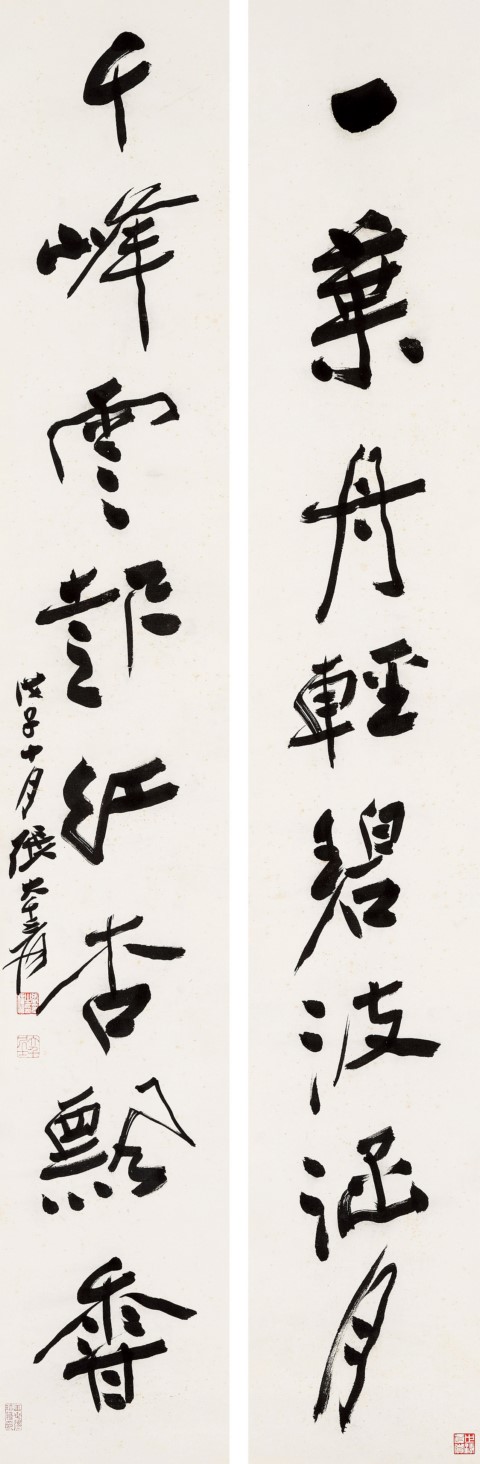 一葉舟輕碧波涵月
千峰雲起紅杏飄香
戊子十月張大千爰